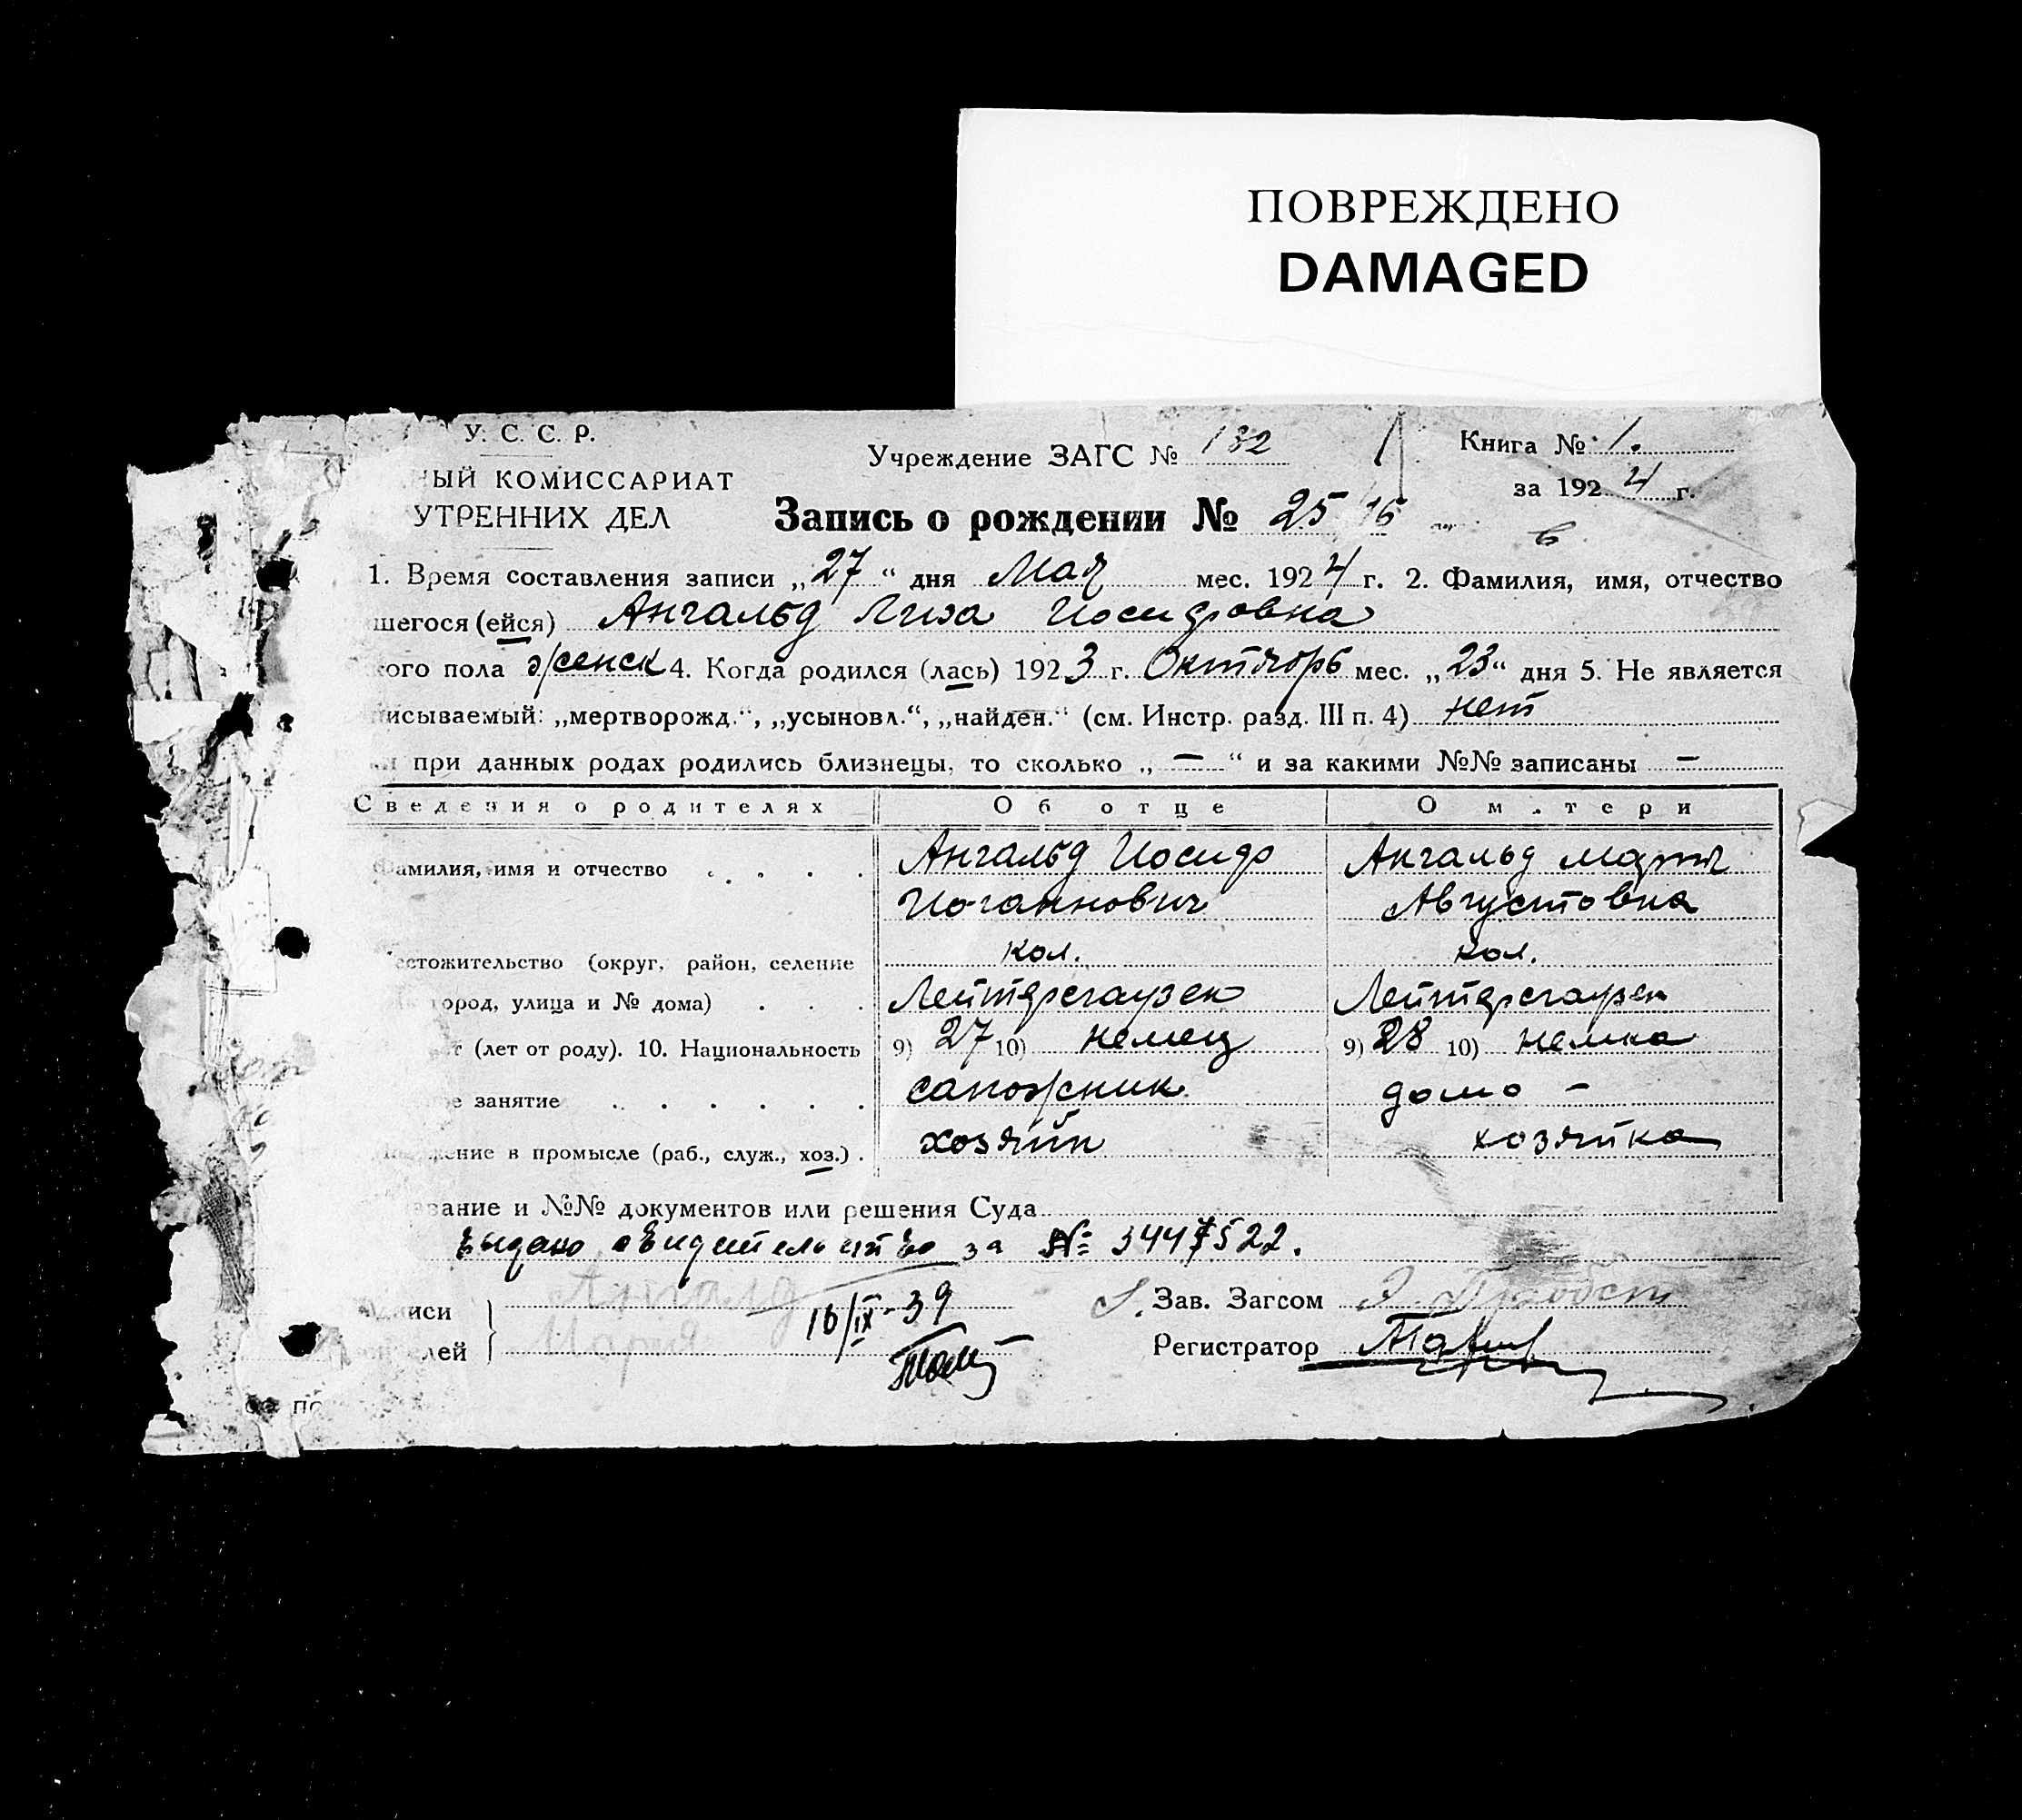 ПОВРЕЖДЕНО
DAMAGED
У. С. С. Р.
НЫЙ КОМИССАРИАТ
УТРЕННИХ ДЕЛ
Учреждение ЗАГС № 132
Книга № 1.
за 1924 г.
Запись о рождении № 25 16
1. Время составления записи „27“ дня Мая мес. 1924 г. 2. Фамилия, имя, отчество
шегося (ейся) Ангальд Лиза Иосифовна
кого пола женск 4. Когда родился (лась) 1923 г. Октябрь мес. „23“ дня 5. Не является
писываемый: „мертворожд.“, „усыновл.“, „найден.“ (см. Инстр. разд. III п. 4) нет
при данных родах родились близнецы, то сколько „ — “ и за какими №№ записаны —
Сведения о родителях Об отце О м.тери
Фамилия, имя и отчество . . . . Ангальд Иосиф Ангальд Мария
Иоганнович Августовна
кол. кол.
естожительство (округ, район, селение
город, улица и № дома) . . . Лейтерсгаузен Лейтерсгаузен
т (лет от роду). 10. Национальность 9) 27 10) немец 9) 28 10) немка
ое занятие . . . . . . сапожник домо -
жение в промысле (раб., служ., хоз.) . хозяйн хозяйка
звание и №№ документов или решения Суда
Выдано свидительство за № 3447522.
Ангальд
Мария
16/IX-39
писи
лей
Зав. Загсом
Регистратор